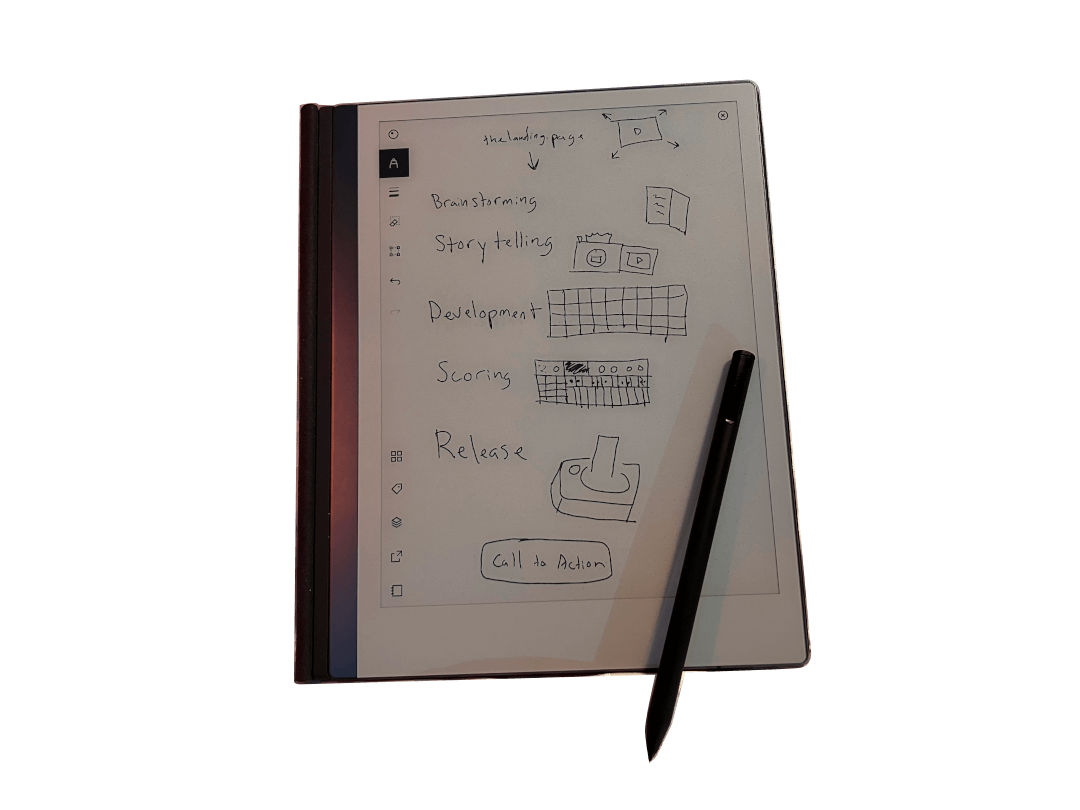 the landing page
Brainstorming
Story telling
Development
Scoring
Release
Call to Action